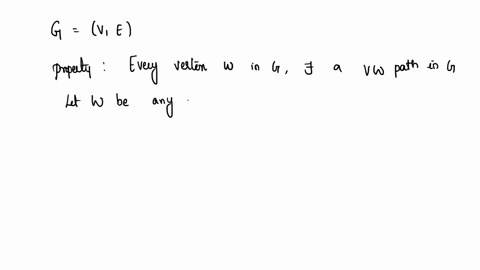 G = (V, E)
Property : Every vertex w in G, ∃ a vw path in G
Let W be any